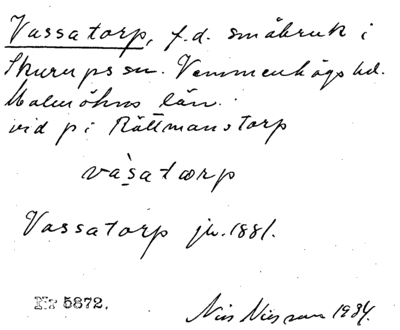 Vassatorp, f.d. småbruk i
Skurups sn. Vemmenhögs hd.
Malmöhus län.
vid p i Rättmanstorp
vàsatorp
Vassatorp jk. 1881.
Nr 5872.
Nils Nilsson 1934.